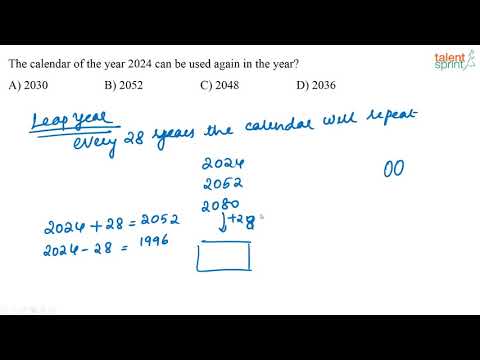 talent
sprint
The calendar of the year 2024 can be used again in the year?
A) 2030 B) 2052 C) 2048 D) 2036
Leap year
every 28 years the calendar will repeat
2024
2052
2080
+28
2024 + 28 = 2052
2024 - 28 = 1996
00